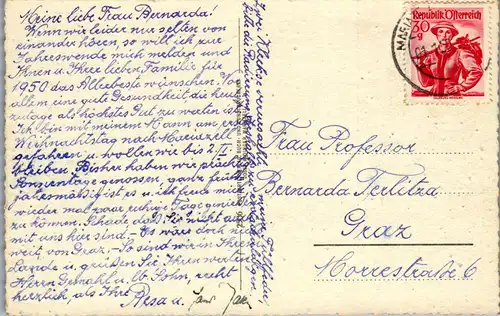 Meine liebe Frau Bernarda!
Wenn wir leider nur selten von
einander hören, so will ich zur
Jahreswende mich melden und
Ihnen u. Ihrer lieben Familie für
1950 das Allerbeste wünschen. Vor
allem eine gute Gesundheit die heut-
zutage als höchstes Gut zu werten ist.
Ich bin mit meinem Mann am ersten
Weihnachtstag nach Mariazell
gefahren u. wollen wir bis 2./I.
bleiben. Bisher haben wir prächtige
Sonnentage genossen, ganz
u. ich freue mich
wieder mal zwei ruhige Tage genießen
zu können. Schade daß Sie nicht auch
mit uns hier sind – Es wäre doch nicht
weit von Graz – So sind wir in Ihrem
Lande u. grüßen Sie Ihren werten
Herrn Gemahl u. lb. Sohn, recht
herzlich, als Ihre
Resa u.
Zwei Kleckse verursachte meine Füllfeder,
Republik Österreich
30
Frau Professor
Bernarda Terlitza
Graz
Morrestraße 6